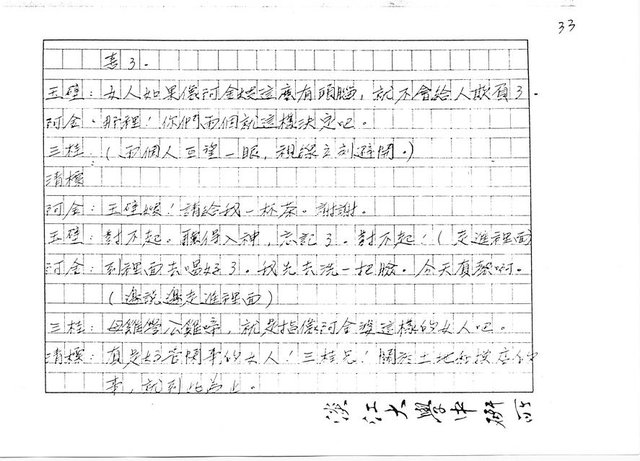 33
意了.
玉壁：女人如果像阿金婆這麼有頭腦，就不會給人欺負了.
阿金：那裡！你們兩個就這樣決定吧。
三桂：(兩個人互望一眼，視線立刻避開。)
清標
阿金：玉壁嫂！請給我一杯茶。謝謝。
玉壁：對不起。聽得入神，忘記了。對不起！(走進裡面)
阿金：到裡面去喝好了。我先去洗一把臉。今天真熱啊。
(邊說邊走進裡面)
三桂：母雞變公雞啼，就是指像阿金婆這樣的女人吧。
清標：真是好管閒事的女人！三桂兄！關於土地
事，就到此為止。
淡江大學中研所